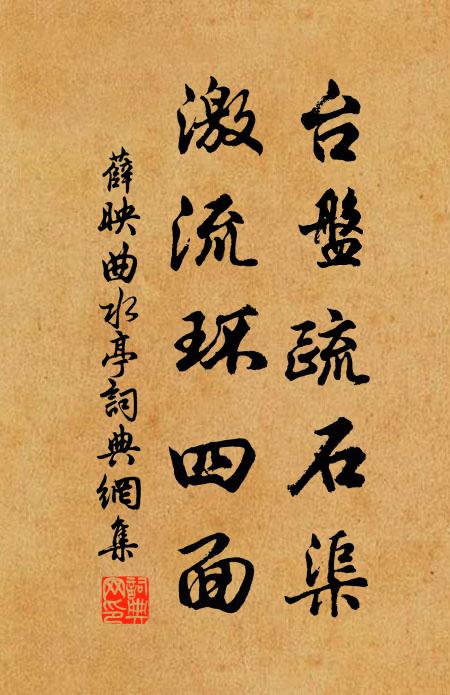 台盤疏石渠
激流环四面
薛映曲水亭詞典網集
詞典网印